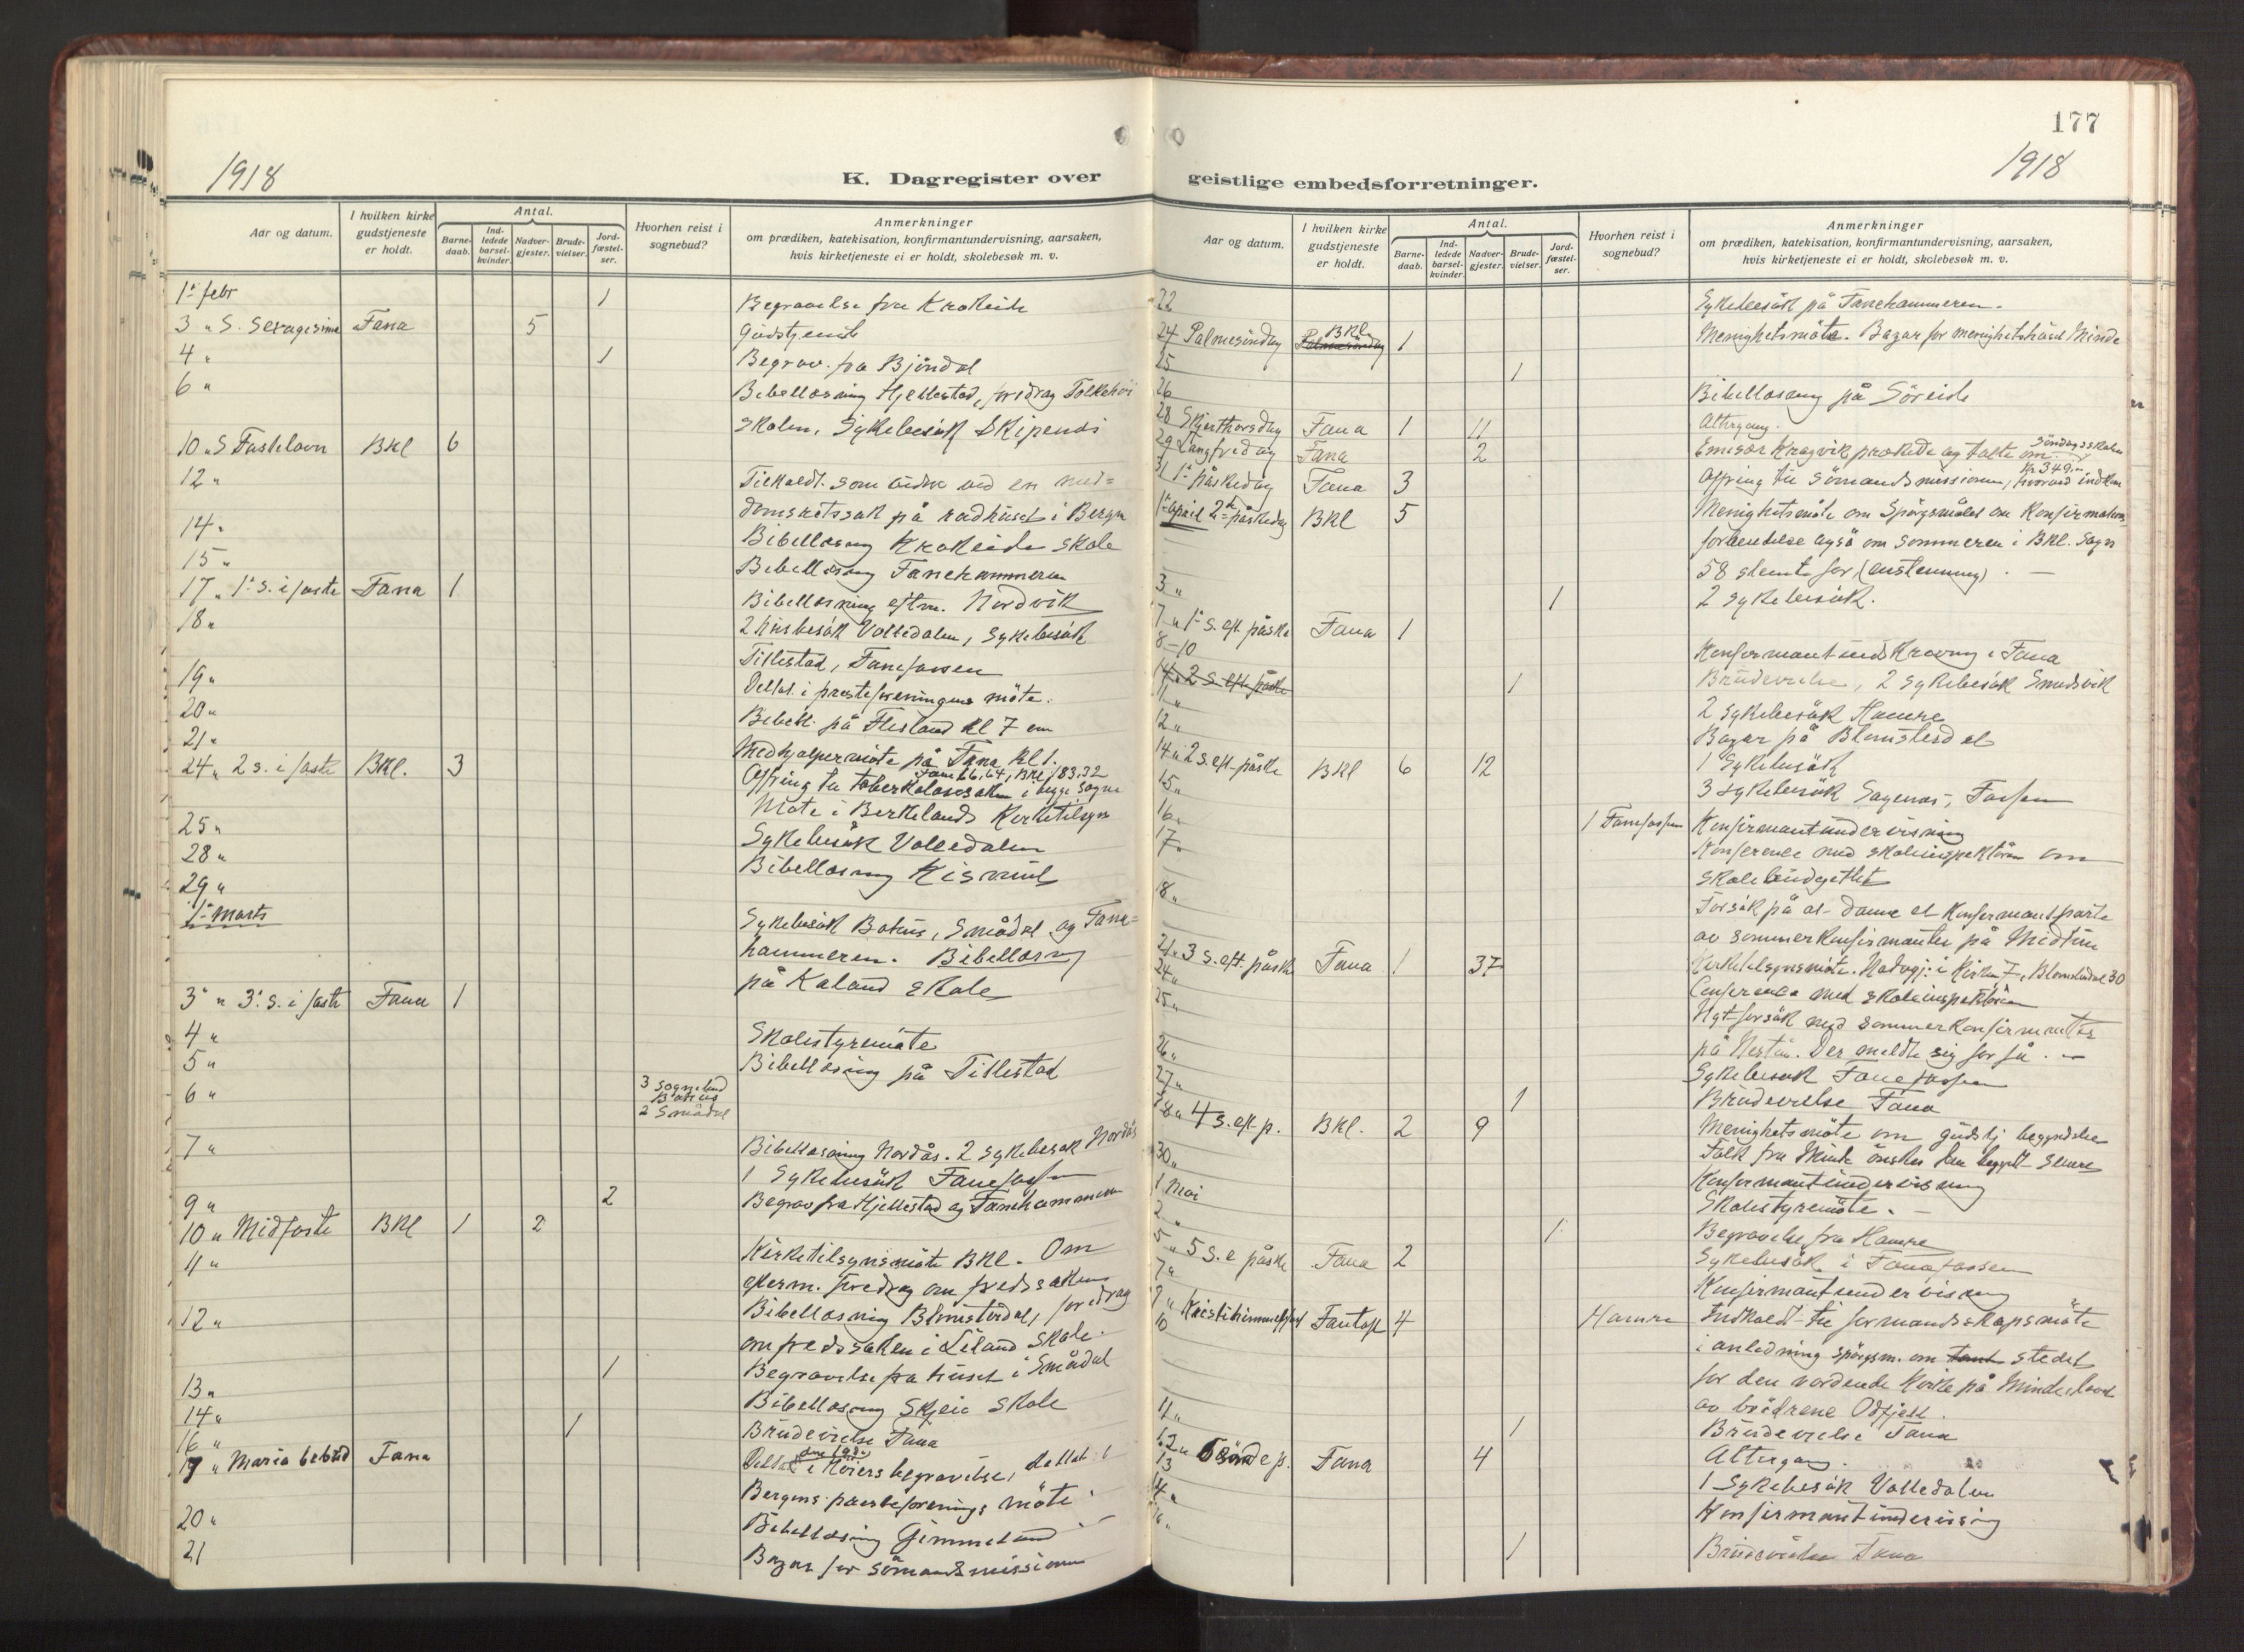 177
1918
1918
K. Dagregister over geistlige embedsforretninger.
Aar og datum.
I hvilken kirke gudstjeneste er holdt.
Antal.
Barne-daab.
Ind-ledede barsel-kvinder.
Nadver-gjester.
Brude-vielser.
Jord-fæstel-ser.
Hvorhen reist i sognebud?
Anmerkninger
om prædiken, katekisation, konfirmantundervisning, aarsaken,
hvis kirketjeneste ei er holdt, skolebesøk m. v.
1ᵗᵉ febr 1 Begravelse fra Krokeide
3 " S. Sexagesima Fana 5 Gudstjeneste
4 " 1 Begrav. fra Bjöndal
6 " Bibellæsning Hjellestad, foredrag
skolen, Sykebesök Skipenes
10 " S Fastelavn BKl 6
12 " Tilkaldt som vidne ved en med=
domsretssak på rådhuset i Bergen
14 " Bibellæsning Krokeide skole
15 " Bibellæsning Fanehammeren
17 " 1ᵗᵉ S. i faste Fana 1 Bibellæsning eftm. Nordvik
18 " 2 husbesök Valledalen, Sykebesök
Tillestad, Fanefossen
19 " Deltat i præsteforeningens möte.
20 " Bibell. på Flesland kl 7 em
21 " Medhjælpermöte på Fana kl 1.
24 " 2 s. i faste BKl. 3 Offring til tuberkulosesaken i begge sogne
Fana 66,64, BKl 83,32
Möte i Birkelands Kirketilsyn
25 " Sykebesök Valledalen
28 " Bibellæsning Kismul
29 "
1ᵗᵉ marts Sykebesök Botnis, Smådal og Fana=
hammeren. Bibellæsning
på Kaland Skole
3ᵈ " 3ᵈ. S. i faste Fana 1
4 " Skolestyremöte
5 " Bibellæsning på Tillestad
6 " 3 Sognebud
2 Smådal
7 " Bibellæsning Nordås. 2 sykebesök Nordås
1 Sykebesök Fanefossen
9 " 2 Begrav fra Hjellestad og Fanehammeren
10 " Midfaste BKl 1 2
11 " Kirketilsynsmöte BKl. Om
efterm. foredrag om fredssaken
12 " Bibellæsning Blomsterdal, foredrag
om fredssaken i Liland Skole.
13 " 1 Begravelse fra huset i Smådal
14 " Bibellæsning Skjeie Skole
16 " 1 Brudevielse Fana
17 " Maria bebud Fana Deltat i begravelse, deltat i
Bergens præsteforenings möte
20 " Bibellæsning Gimmeland
21 Bazar for Sömandsmissionen
Aar og datum.
I hvilken kirke gudstjeneste er holdt.
Antal.
Barne-daab.
Ind-ledede barsel-kvinder.
Nadver-gjester.
Brude-vielser.
Jord-fæstel-ser.
Hvorhen reist i sognebud?
Anmerkninger
om prædiken, katekisation, konfirmantundervisning, aarsaken,
hvis kirketjeneste ei er holdt, skolebesøk m. v.
22 Sykebesök på Fanehammeren.
24 Palmesöndag BKl 1 Menighetsmöte. Bazar for menighetshuset Minde
25 1
26 Bibellæsning på Söreide
28 Skjærthorsdag Fana 1 11 Altergang.
29 Langfredag Fana 2 Emisær Kragvik prækede og talte om Söndagsskolen
31 1ᵗᵉ påskedag Fana 3 Offring til Sömandsmissionen, hvorved indkom kr 349
1ᵗᵉ april 2ᵈᵉⁿ påskedag BKl 5 Menighetsmöte om Spörgsmålet om Konfirmations
forberedelse også om sommeren i BKl. Sogn
58 stemte for (enstemmig). —
3 " 1 2 Sykebesök.
7 " 1ᵗᵉ s. eft. påske Fana 1
8–10 Konfirmantindskrivning i Fana
14 " 2 S. eft. påske 1 Brudevielse, 2 Sykebesök Smedsvik
11 " 2 Sykebesök Hamre
12 " Bazar på Blomsterdal
14 " 2 s. eft. påske BKl 6 12 1 Sykebesök
15 " 3 sykebesök Fossen
16 " 1 Fanefossen Konfirmantundervisning
17 " Konference med skoleinspektören om
skolebudgettet
18 " Forsök på at danne et Konfirmantparti
av sommerkonfirmanter på Midtun
21 " 3 s. eft. påske Fana 1 37 Kirketilsynsmöte. Nadvgj. i Kirken 7, Blomsterdal 30
24 " Conference med skoleinspektören
25 " Nyt forsök med sommerkonfirmanter
på Nestun. Der meldte sig for få. —
26 " Sykebesök Fanefossen
27 " 1 Brudevielse Fana
28 " 4 s. eft. p. BKl. 2 9 Menighetsmöte om gudstj. begyndelse
Folk fra Minde önsker den begynt senere
30 " Konfirmantundervisning
1 Mai Skolestyremöte. —
2 " 1 Begravelse fra Hamre
5 " 5 S. e påske Fana 2 Sykebesök i Fanafossen
7 " Konfirmantundervisning
9 " Kristihimmelfart Fantoft 4 Hamre Indkaldt til formandsskapsmöte
10 i anledning spörgsm. om stedet
for den vordende Kirke på Minde
av brödrene Odfjell.
11 " 1 Brudevielse Fana
12 " 6 Sönd e p. Fana 4 Altergang.
13 1 Sykebesök Valledalen
14 " Konfirmantundervisning
1 Brudevielse Fana